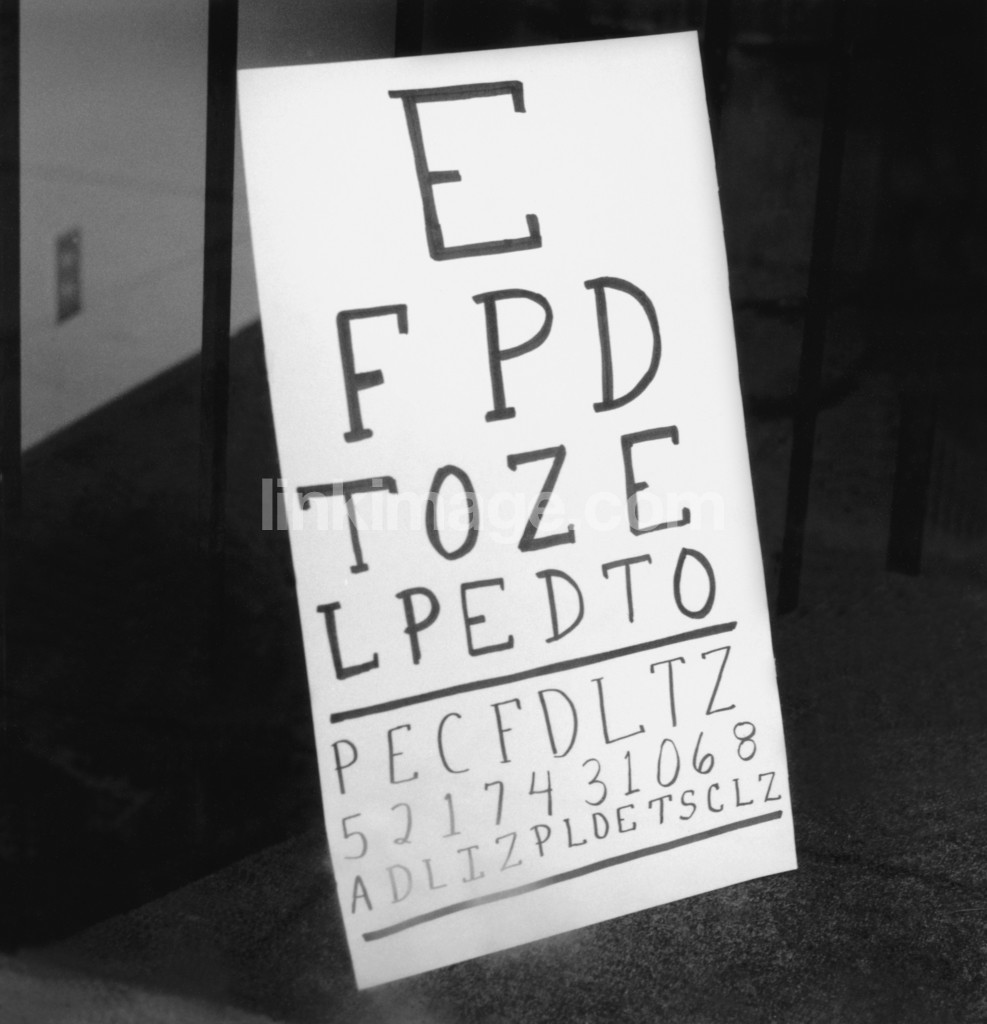 E
F P D
T O Z E
L P E D T O
P E C F D L T Z
5 2 1 7 4 3 1 0 6 8
A D L I Z P L D E T S C L Z
linkimage.com